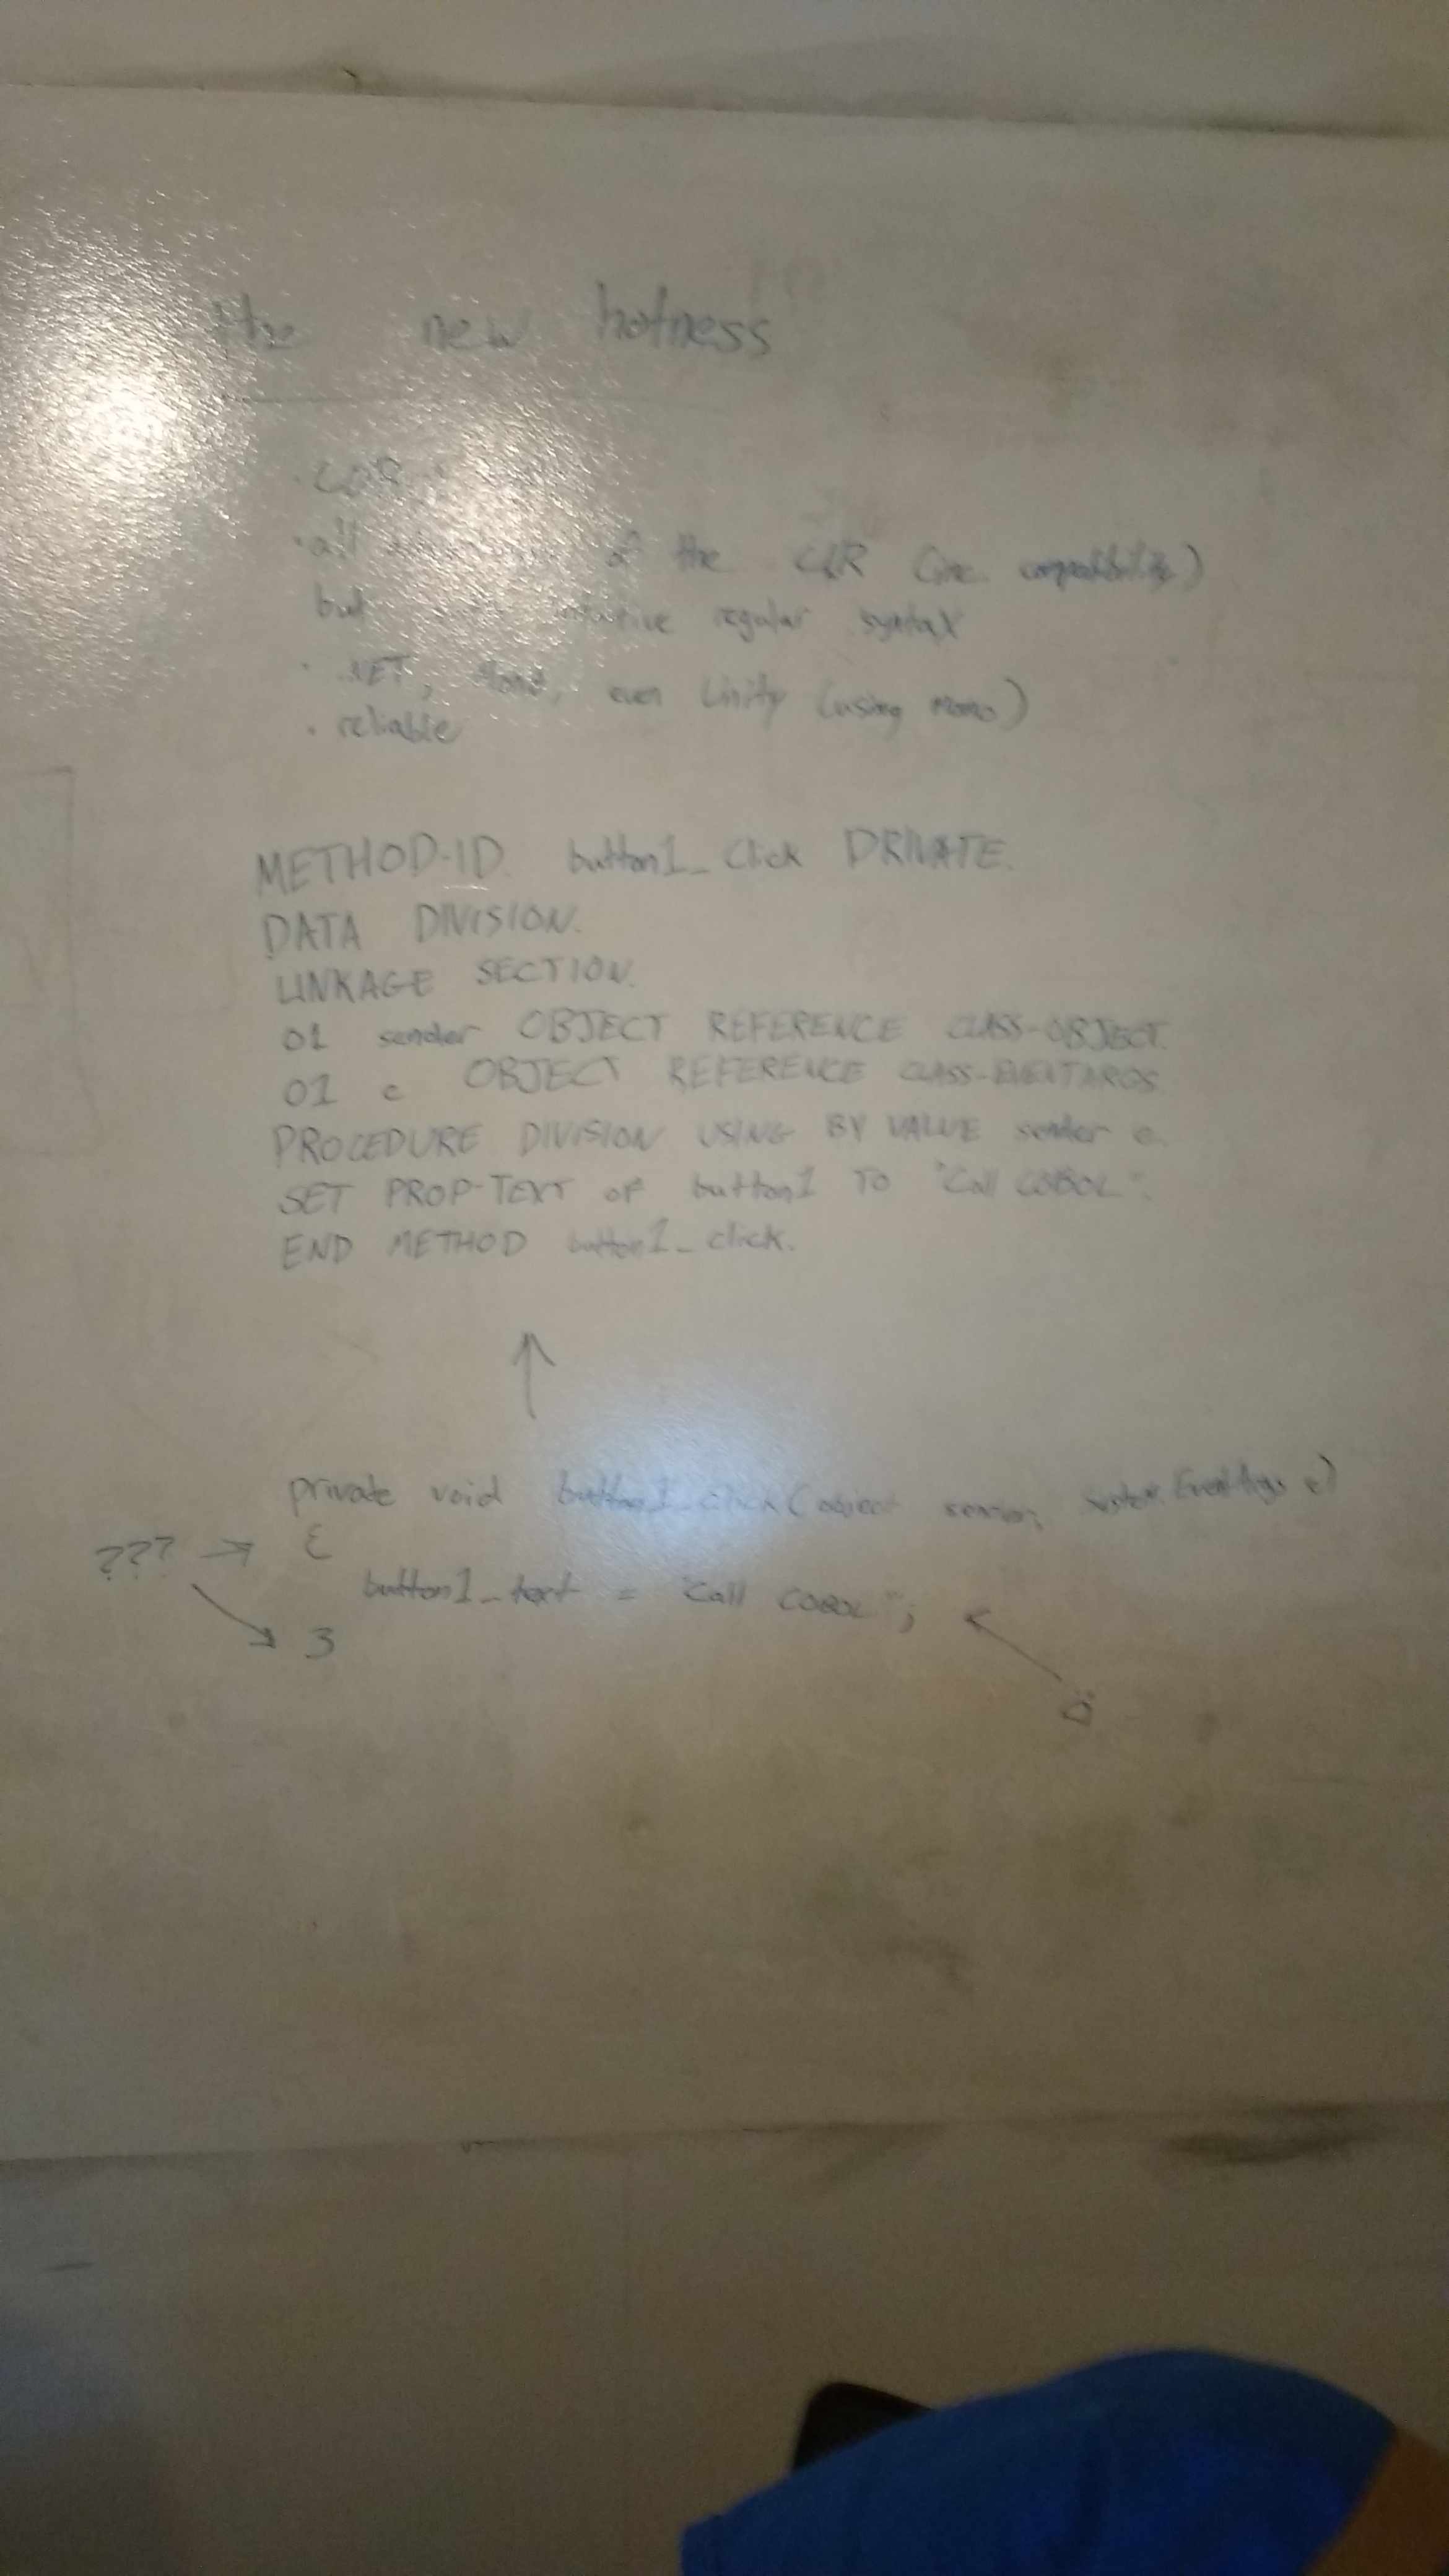 the new hotness
· all of the CLR (inc. compatibility)
but regular syntax
· .NET, Mono, even Unity (using mono)
· reliable
METHOD-ID. button1_Click PRIVATE.
DATA DIVISION.
LINKAGE SECTION.
01 sender OBJECT REFERENCE CLASS-OBJECT.
01 e OBJECT REFERENCE CLASS-EVENTARGS.
PROCEDURE DIVISION USING BY VALUE sender e.
SET PROP-TEXT OF button1 TO "Call COBOL".
END METHOD button1_click.
private void button1_click(object sender, System.EventArgs e)
??? → {
button1_text = "Call COBOL";
}